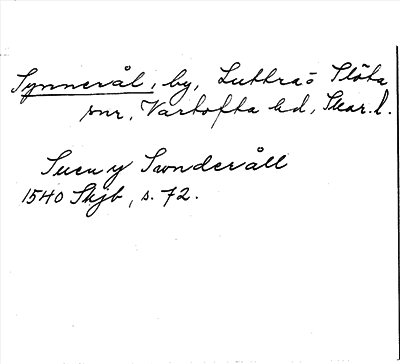 Synnerål, by, Luttra o Slöta
snr, Vartofta hd, Skar. l.
Suen y Swnderåll
1540 Skjb, s. 72.